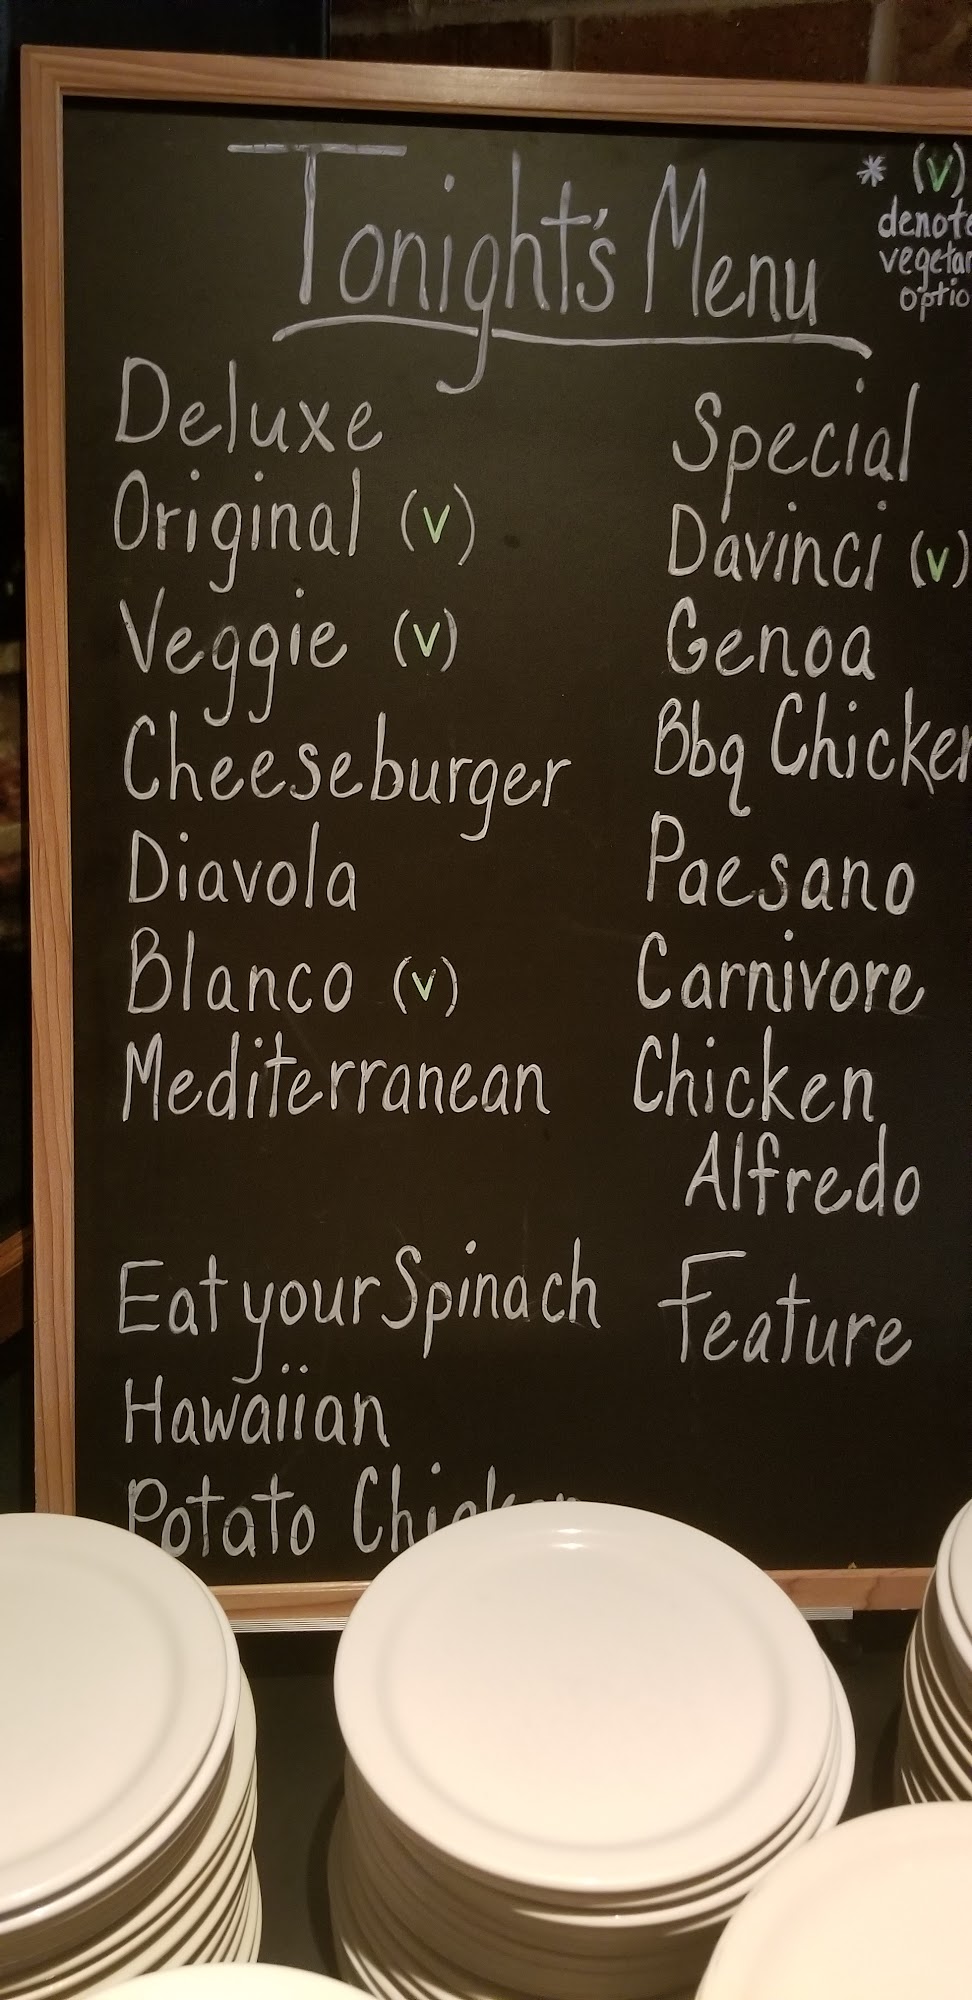 Tonight's Menu
* (v)
denote
vegetar
optio
Deluxe
Original (v)
Veggie (v)
Cheeseburger
Diavola
Blanco (v)
Mediterranean
Eat your Spinach
Hawaiian
Potato Chicken
Special
Davinci (v)
Genoa
Bbq Chicken
Paesano
Carnivore
Chicken
Alfredo
Feature